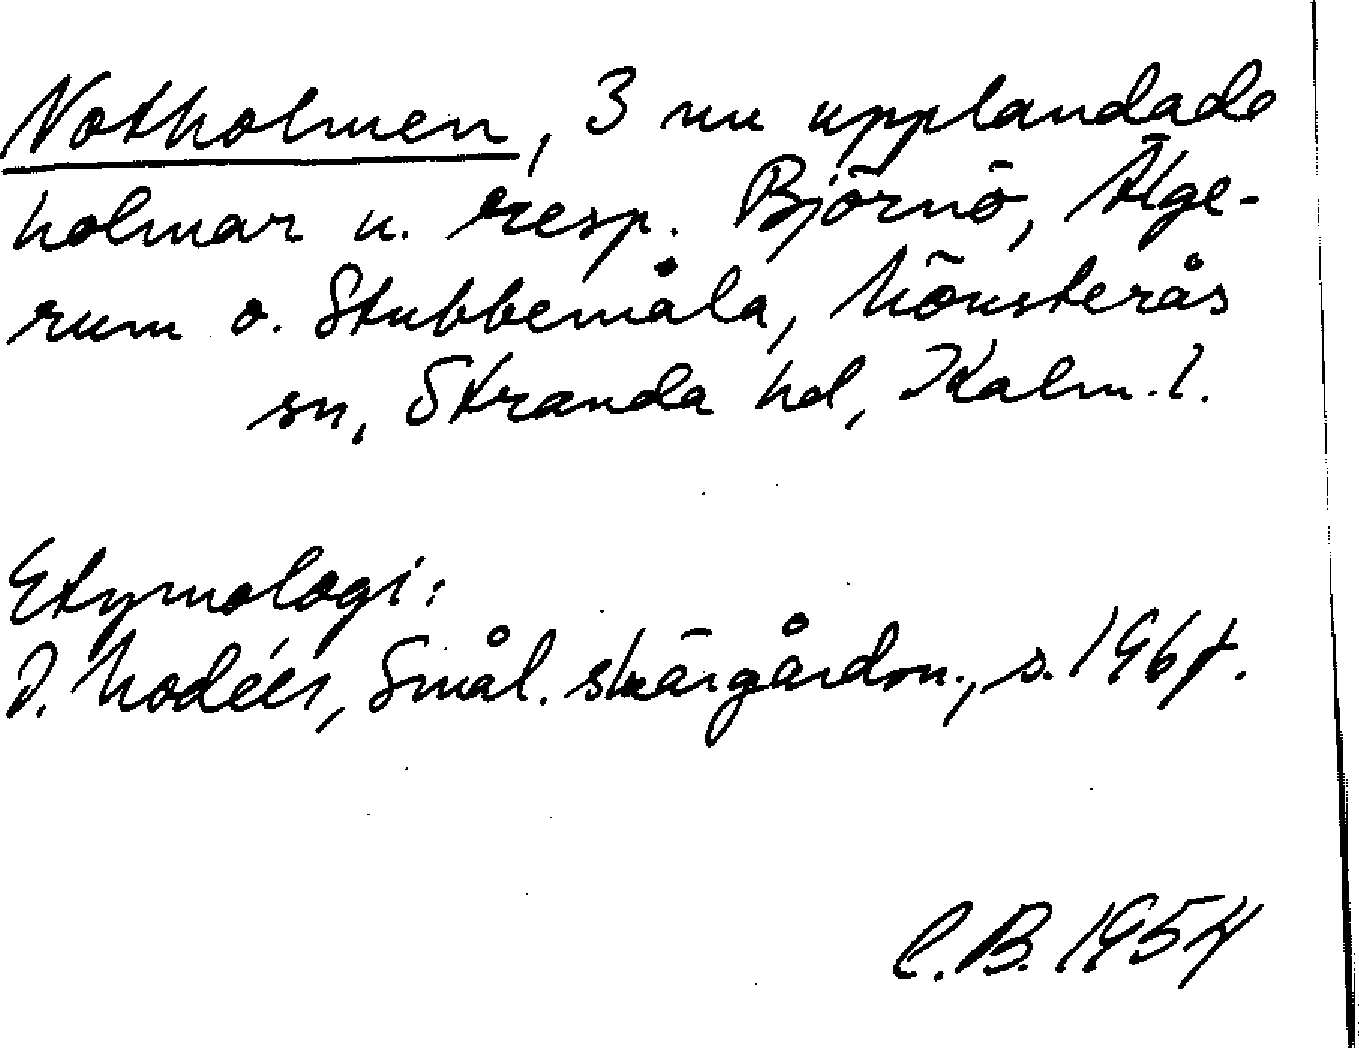 Notholmen, 3 nu upplandade
holmar u. resp. Björnö, Älge-
rum o. Stubbemåla, Mönsterås
sn, Stranda hd, Kalm. l.
Etymologi:
I. Modéer, Smål. skärgårdsn., s. 196 f.
C.B. 1954